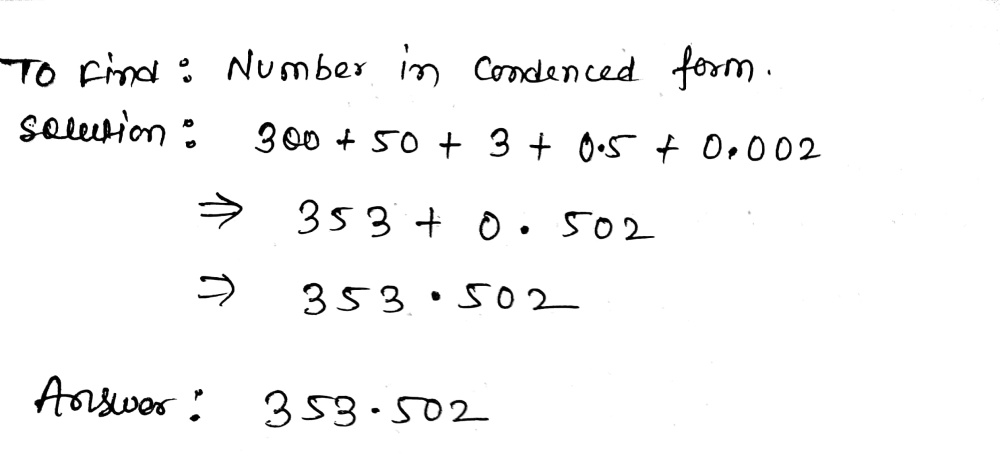 To Find : Number in Condenced form.
Solution : 300 + 50 + 3 + 0.5 + 0.002
⇒ 353 + 0.502
⇒ 353.502
Answer : 353.502